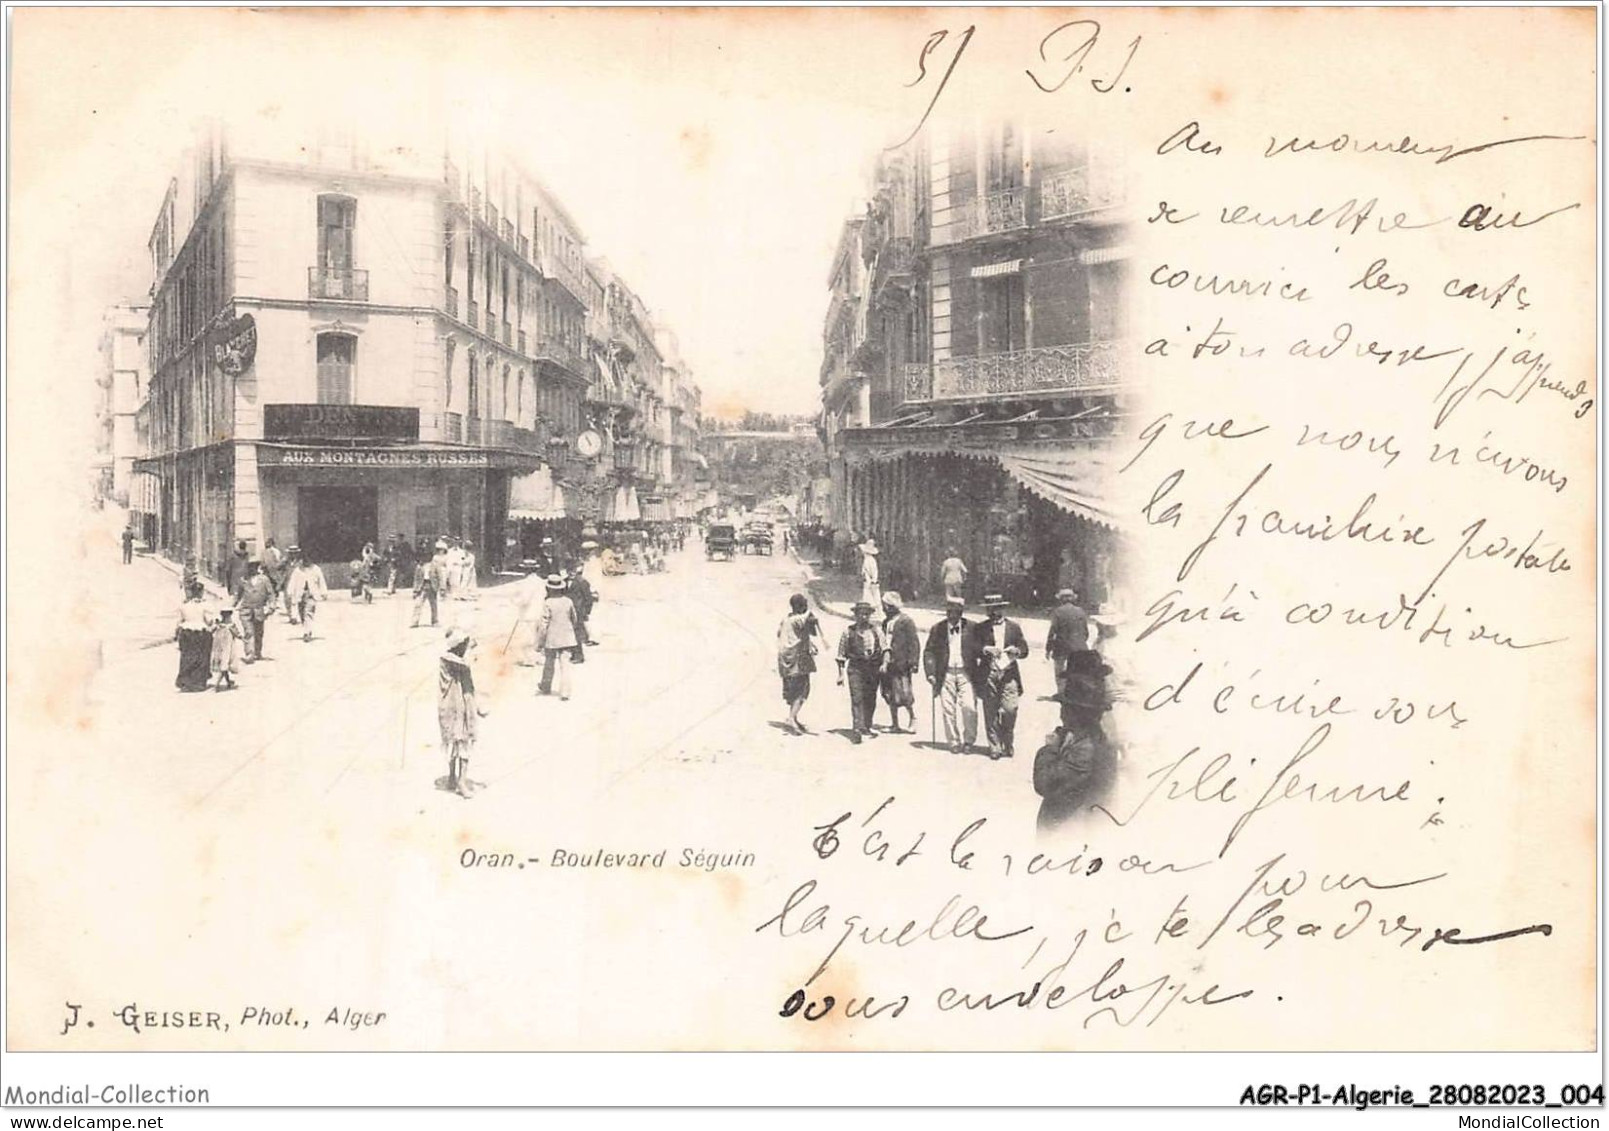 5/ P.S.
Au moment
de remettre au
courrier les cartes
à ton adresse, j'apprends
que nous n'avons
la franchise postale
qu'à condition
d'écrire sous
pli fermé.
C'est la raison pour
laquelle, je te les adresse
sous enveloppe.
DENTISTE
AUX MONTAGNES RUSSES
Oran.- Boulevard Séguin
J. GEISER, Phot., Alger
Mondial-Collection
AGR-P1-Algerie_28082023_004
delcampe.net
MondialCollection